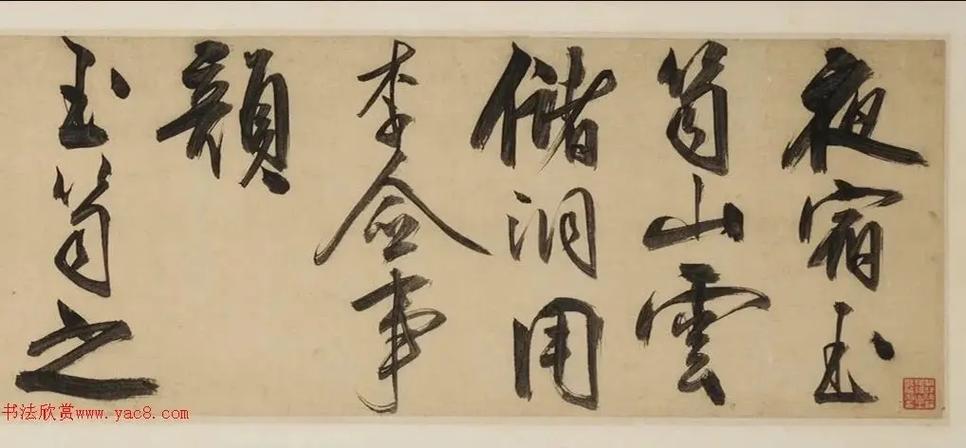 夜宿玉
笥山雲
儲洞用
李僉事
韻
玉笥之
书法欣赏www.yac8.com